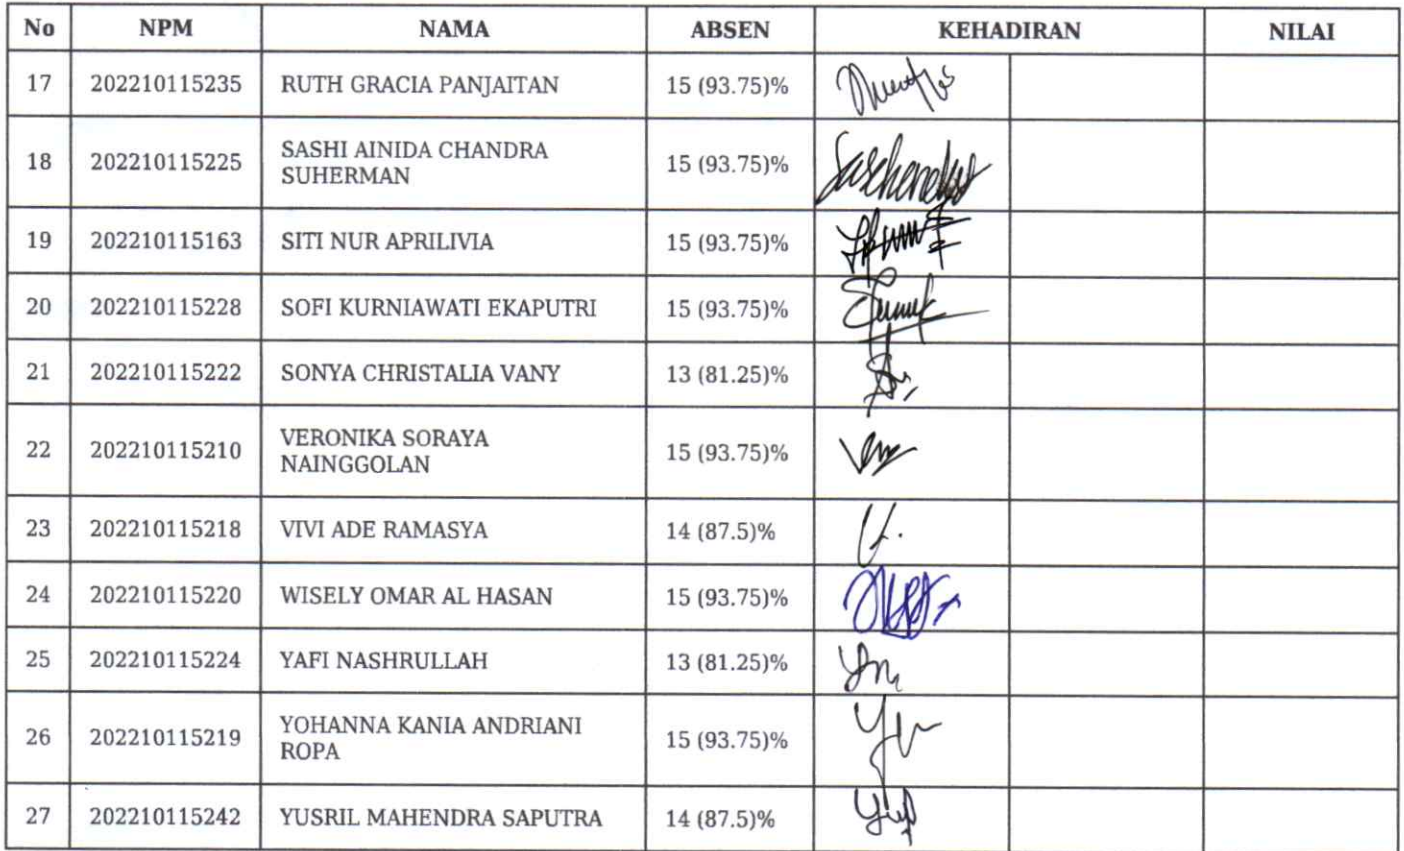 No NPM NAMA ABSEN KEHADIRAN NILAI
17 202210115235 RUTH GRACIA PANJAITAN 15 (93.75)%
18 202210115225 SASHI AINIDA CHANDRA SUHERMAN 15 (93.75)%
19 202210115163 SITI NUR APRILIVIA 15 (93.75)%
20 202210115228 SOFI KURNIAWATI EKAPUTRI 15 (93.75)%
21 202210115222 SONYA CHRISTALIA VANY 13 (81.25)%
22 202210115210 VERONIKA SORAYA NAINGGOLAN 15 (93.75)%
23 202210115218 VIVI ADE RAMASYA 14 (87.5)%
24 202210115220 WISELY OMAR AL HASAN 15 (93.75)%
25 202210115224 YAFI NASHRULLAH 13 (81.25)%
26 202210115219 YOHANNA KANIA ANDRIANI ROPA 15 (93.75)%
27 202210115242 YUSRIL MAHENDRA SAPUTRA 14 (87.5)%